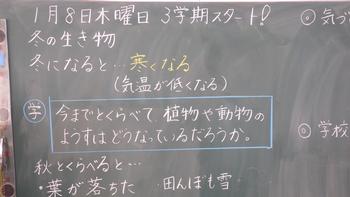 1月8日木曜日 3学期スタート!
◎気づ
冬の生き物
冬になると…寒くなる
(気温が低くなる)
学 今までとくらべて、植物や動物の
ようすはどうなっているだろうか。
◎学校
秋とくらべると…
・葉が落ちた ・田んぼも雪